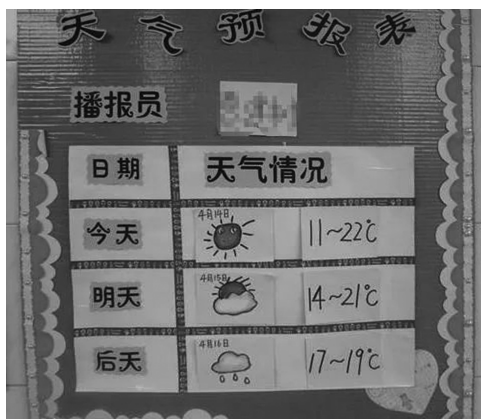 天气预报表
播报员
日期 天气情况
今天 4月14日 11~22℃
明天 4月15日 14~21℃
后天 4月16日 17~19℃